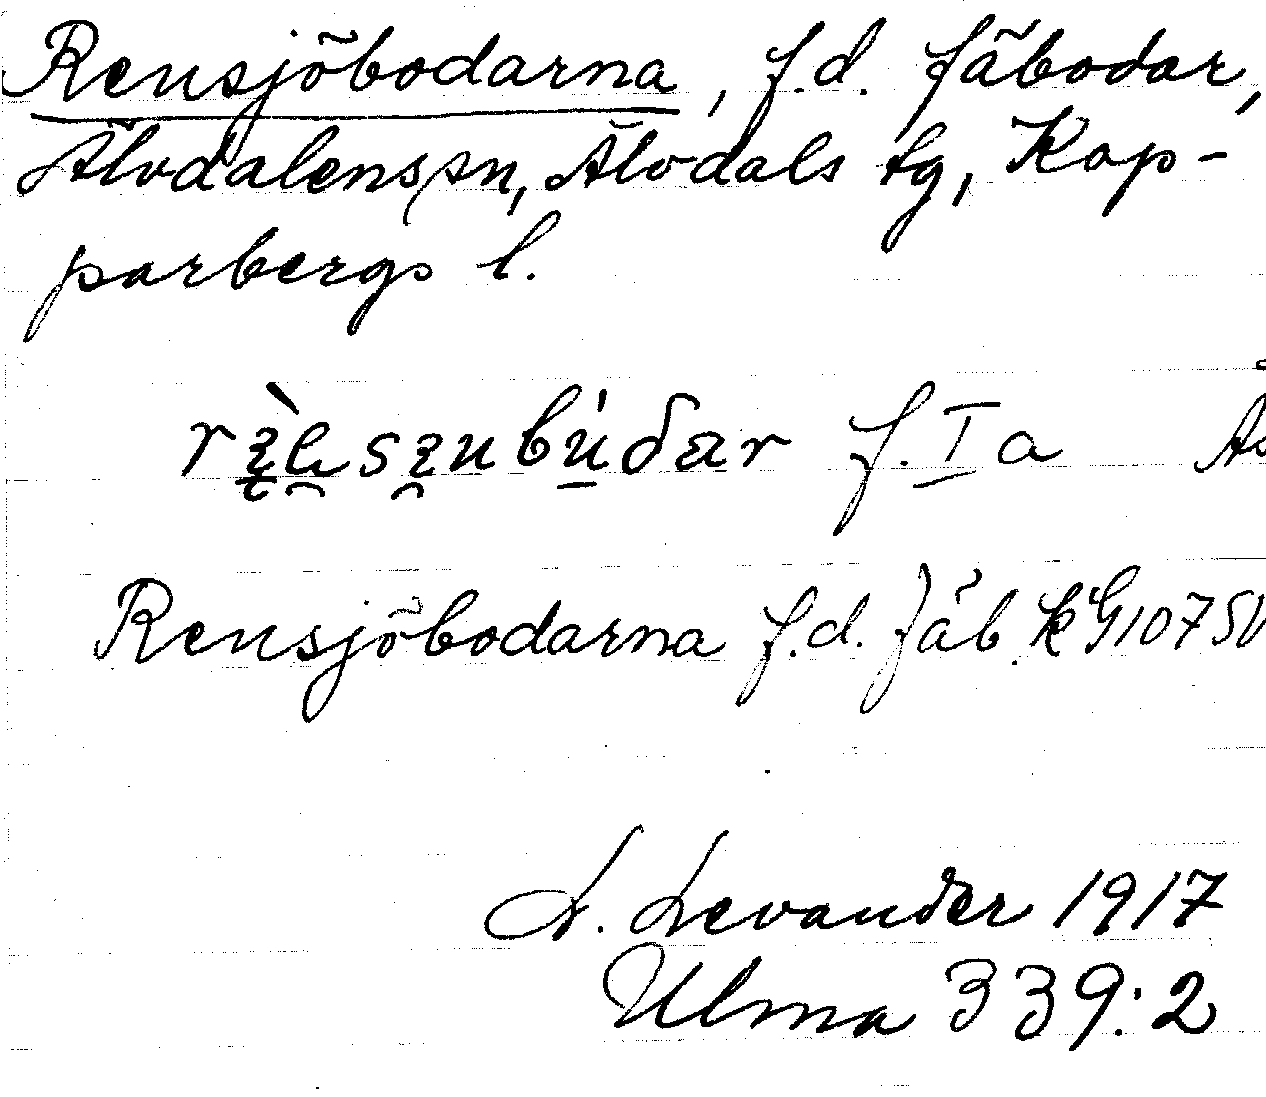 Rensjöbodarna, f.d. fäbodar,
Älvdalens sn, Älvdals tg, Kop-
parbergs l.
f. I a
Rensjöbodarna f.d. fäb. k G 1075V
L. Levander 1917
Ulma 339:2